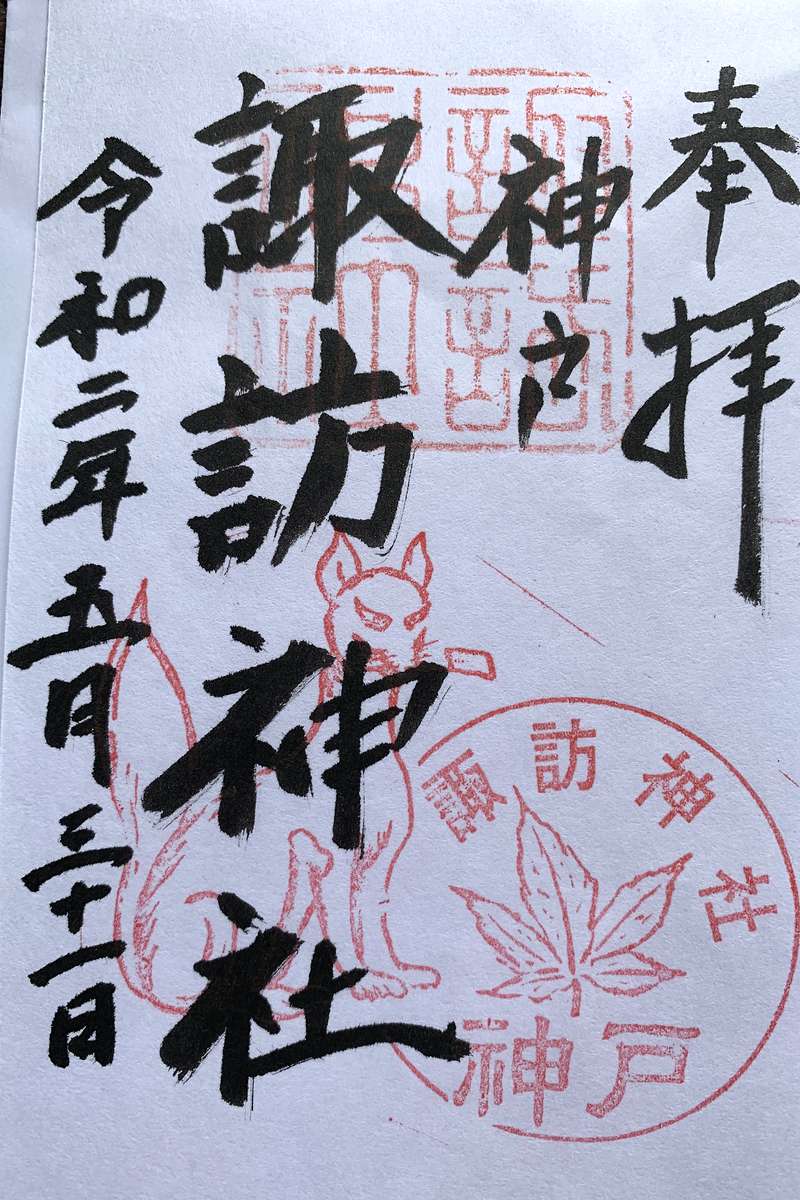 奉拝
神戸
諏訪神社
令和二年五月三十一日
諏訪神社
神戸